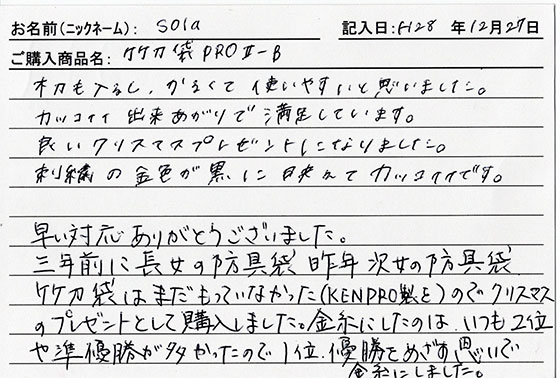 お名前(ニックネーム): sola 記入日: H28 年 12月 27日
ご購入商品名: 竹刀袋 PRO II-B
木刀も入るし、かるくて使いやすいと思いました。
カッコイイ出来あがりで満足しています。
良いクリスマスプレゼントになりました。
刺繍の金色が黒に映えてカッコイイです。
早い対応ありがとうございました。
三年前に長女の防具袋 昨年次女の防具袋
竹刀袋はまだもっていなかった(KENPRO製を)のでクリスマス
のプレゼントとして購入しました。金糸にしたのは、いつも2位
や準優勝が多かったので1位、優勝をめざす思いで
金糸にしました。